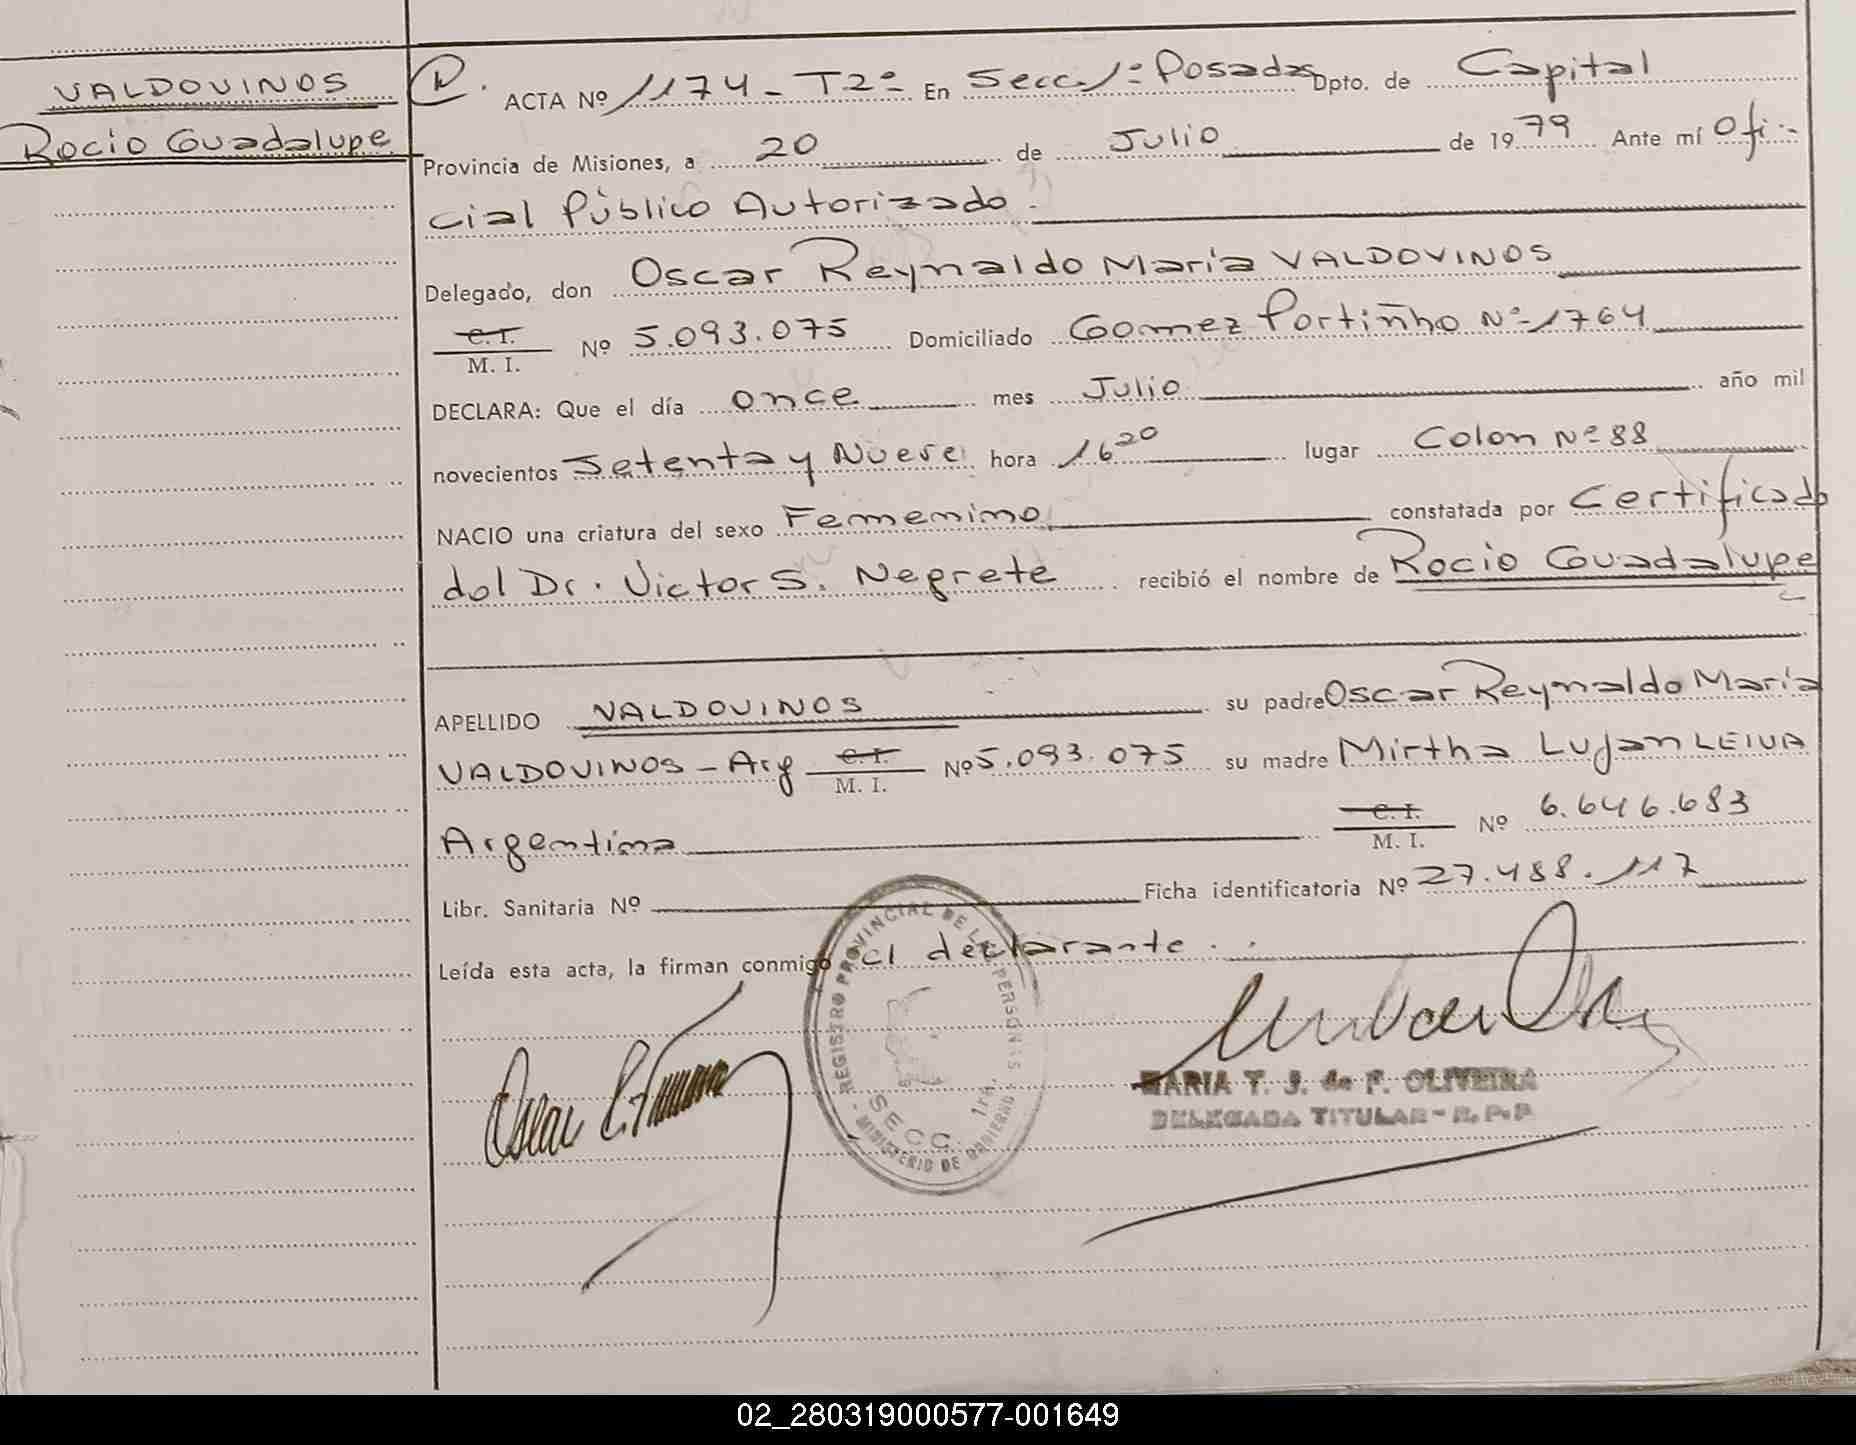 VALDOVINOS
Rocio Guadalupe
ACTA Nº 1174 - T2º - En Secc. 1º Posadas Dpto. de Capital
Provincia de Misiones, a 20 de Julio de 1979 Ante mí Ofi-
cial Público Autorizado.
Delegado, don Oscar Reynaldo María VALDOVINOS
C. I.
M. I. Nº 5.093.075 Domiciliado Gomez Portiñho Nº 1764
DECLARA: Que el día once mes Julio año mil
novecientos Setenta y Nueve hora 16 20 lugar Colon Nº 88
NACIO una criatura del sexo Femenino constatada por Certificado
del Dr. Victor S. Negrete recibió el nombre de Rocio Guadalupe
APELLIDO VALDOVINOS su padre Oscar Reynaldo María
VALDOVINOS - Arg C. I. M. I. Nº 5.093.075 su madre Mirtha Lujan LEIVA
Argentina C. I. M. I. Nº 6.646.683
Libr. Sanitaria Nº Ficha identificatoria Nº 27.488.117
Leída esta acta, la firman conmigo el declarante.
REGISTRO PROVINCIAL DE LAS PERSONAS
SECC. 1ra.
MINISTERIO DE GOBIERNO
MARIA T. J. de F. OLIVEIRA
DELEGADA TITULAR - R. P. P.
02_280319000577-001649